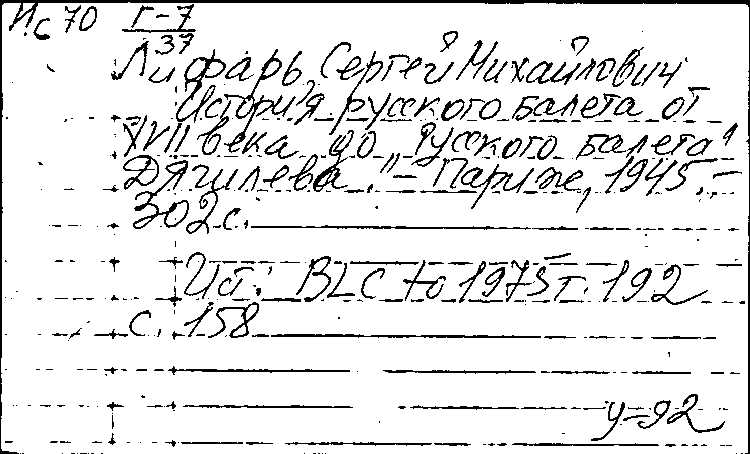 Ис 70 Г-7
37
Лифарь, Сергей Михайлович
История русского балета от
XVII века до „Русского балета"
Дягилева." – Париж, 1945. –
302 с.
Ист: BLC to 1975 т. 192
с. 158
у-92